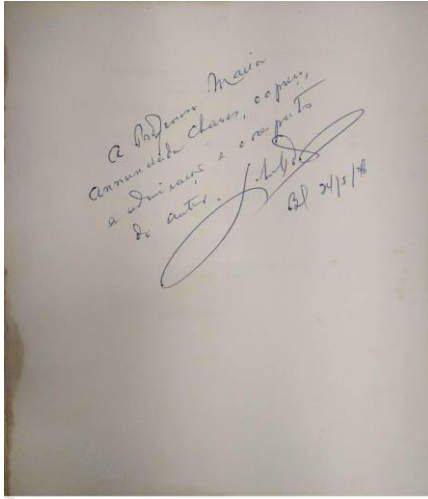 A Professora Maria
Annunciada Chaves, o apreço,
a admiração e o respeito
do autor.
Bel 24/5/78